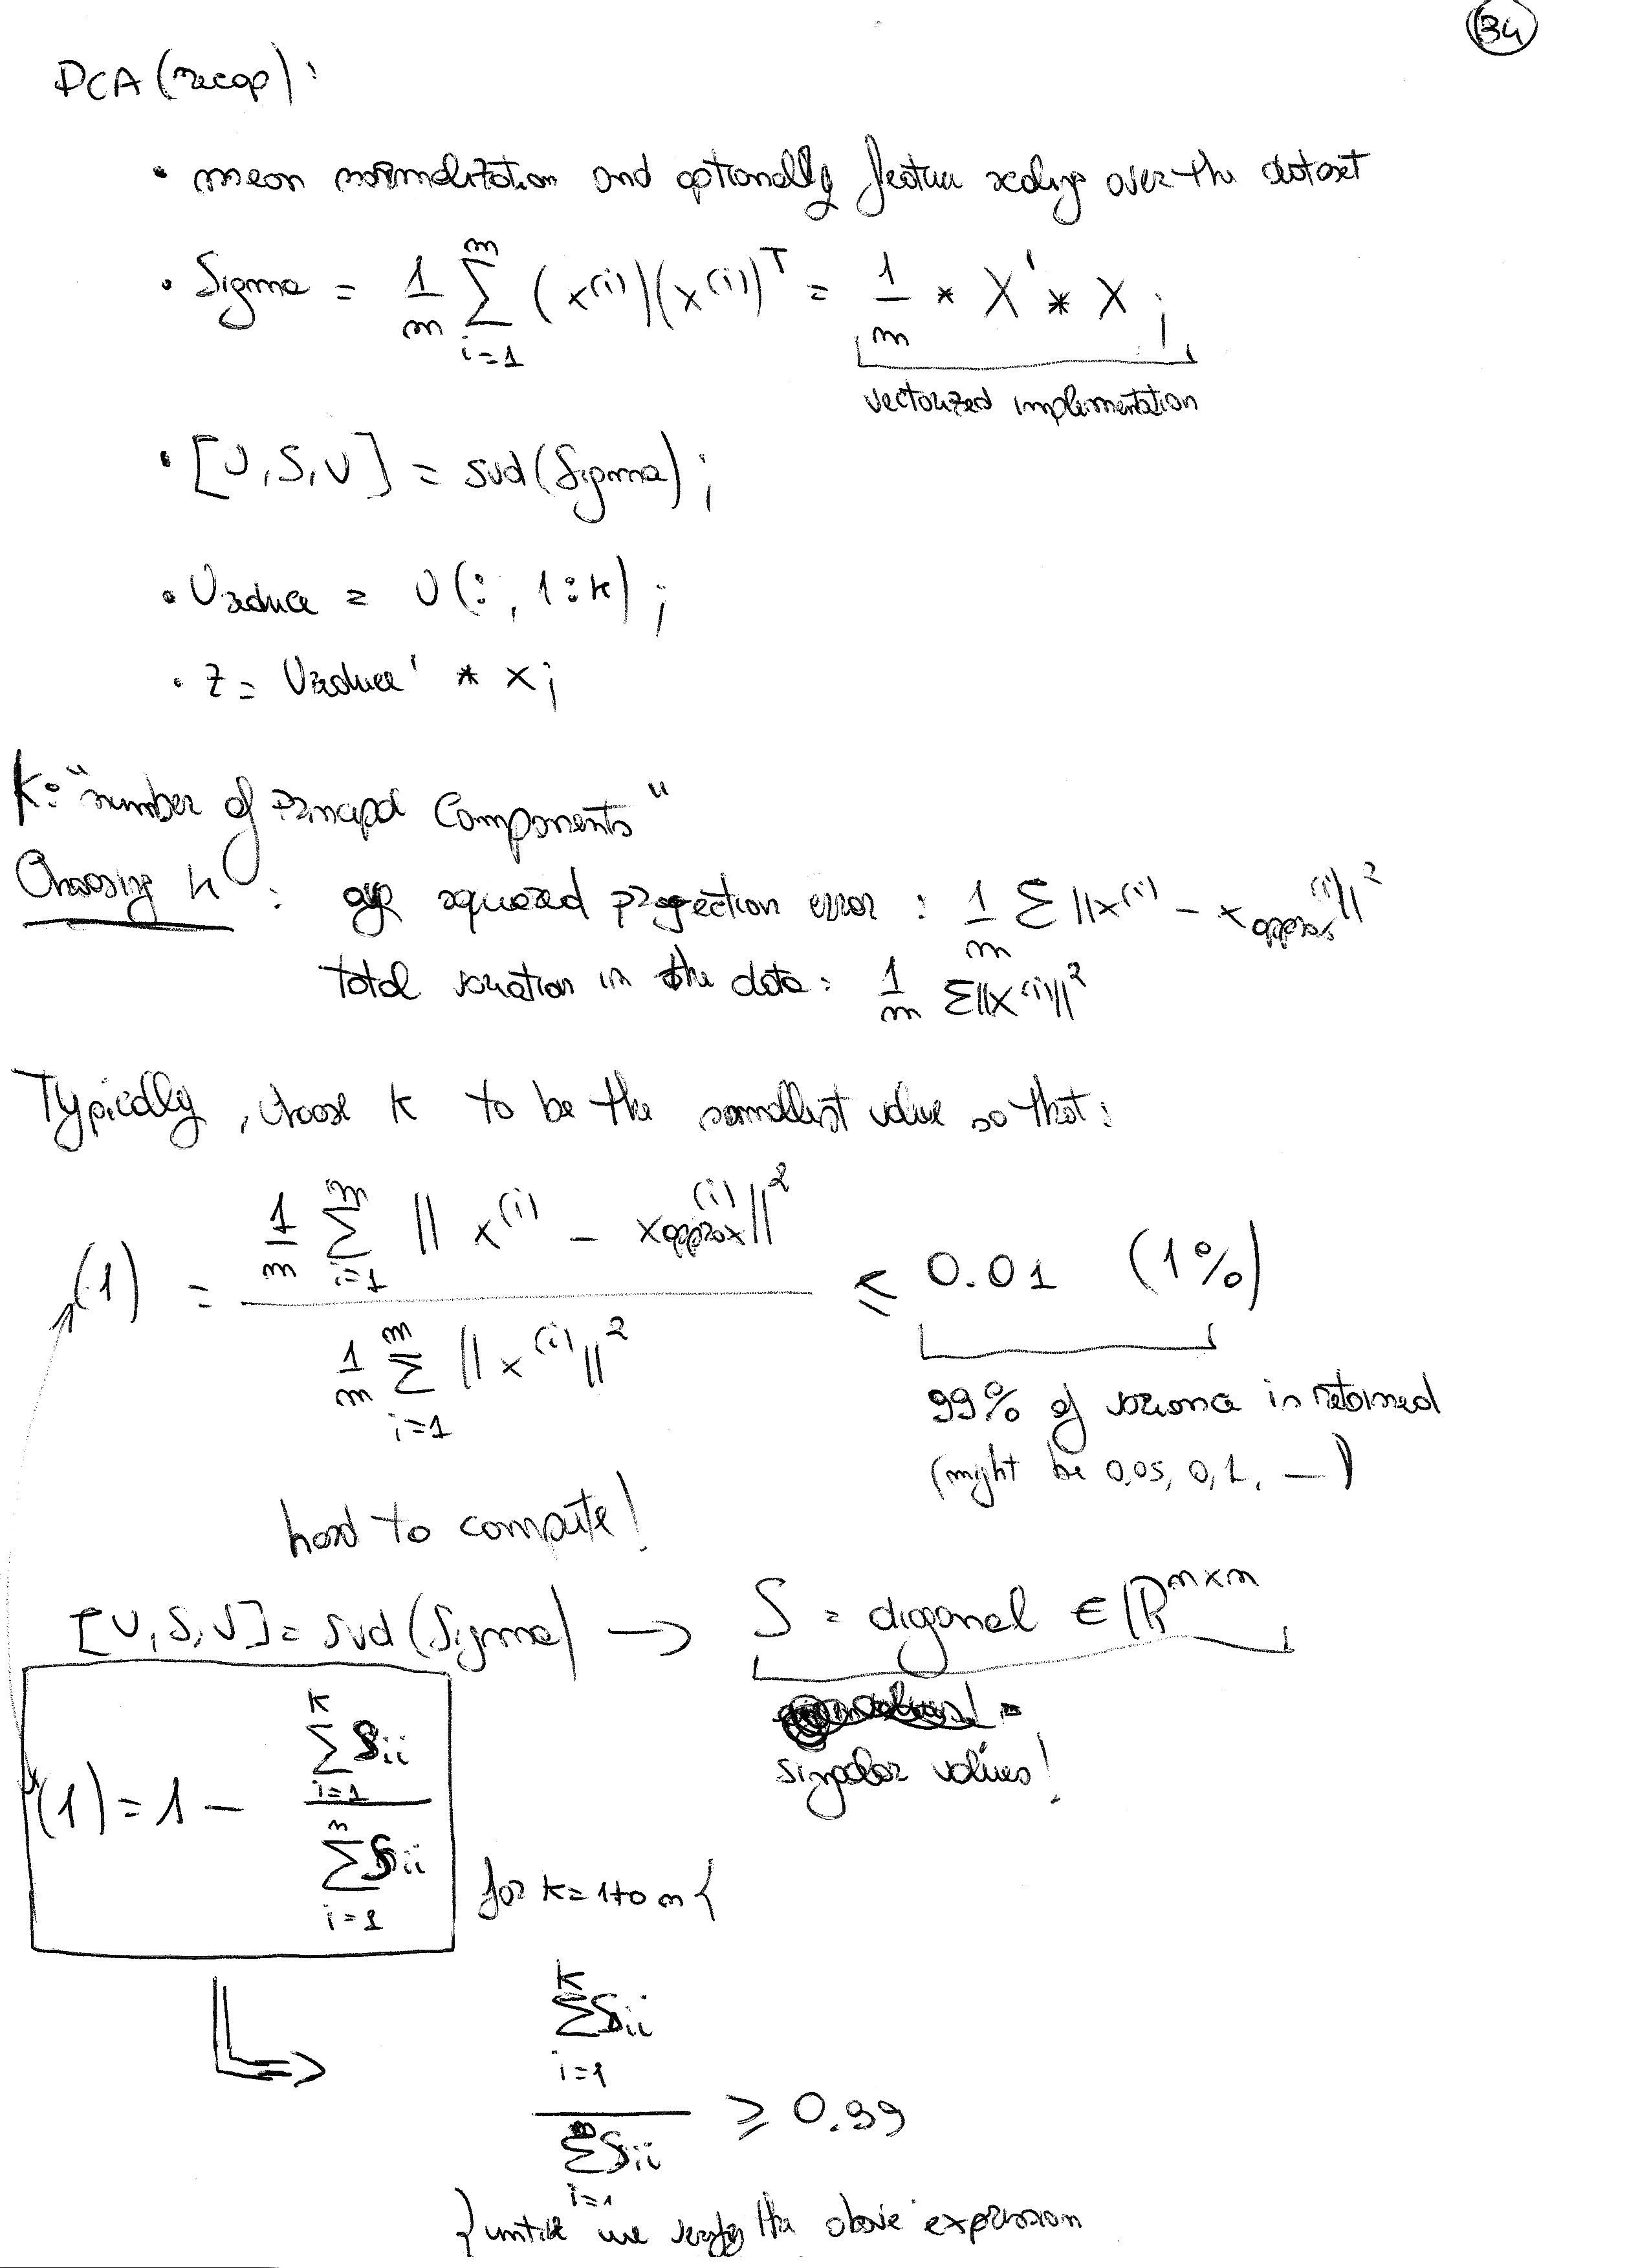 34
PCA (recap):
• mean normalization and optionally feature scaling over the dataset
• Sigma = 1/m Σ_{i=1}^{m} (x^(i))(x^(i))^T = 1/m * X' * X ;
vectorized implementation
• [U,S,V] = svd(Sigma);
• Ureduce = U(:, 1:k);
• z = Ureduce' * x;
k: "number of Principal Components"
Choosing k: avg squared projection error: 1/m Σ ||x^(i) - x_approx^(i)||^2
total variation in the data: 1/m Σ||x^(i)||^2
Typically, choose k to be the smallest value so that:
(1) = (1/m Σ_{i=1}^{m} || x^(i) - x_approx^(i) ||^2) / (1/m Σ_{i=1}^{m} || x^(i) ||^2) ≤ 0.01 (1%)
99% of variance is retained
(might be 0,05, 0,1, —)
hard to compute!
[U,S,V] = svd(Sigma) → S = diagonal ∈ ℝ^{n×n}
singular values!
(1) = 1 - (Σ_{i=1}^{k} Sii) / (Σ_{i=1}^{n} Sii)
for k = 1 to n {
(Σ_{i=1}^{k} Sii) / (Σ_{i=1}^{n} Sii) ≥ 0.99
} until we verify the above expression